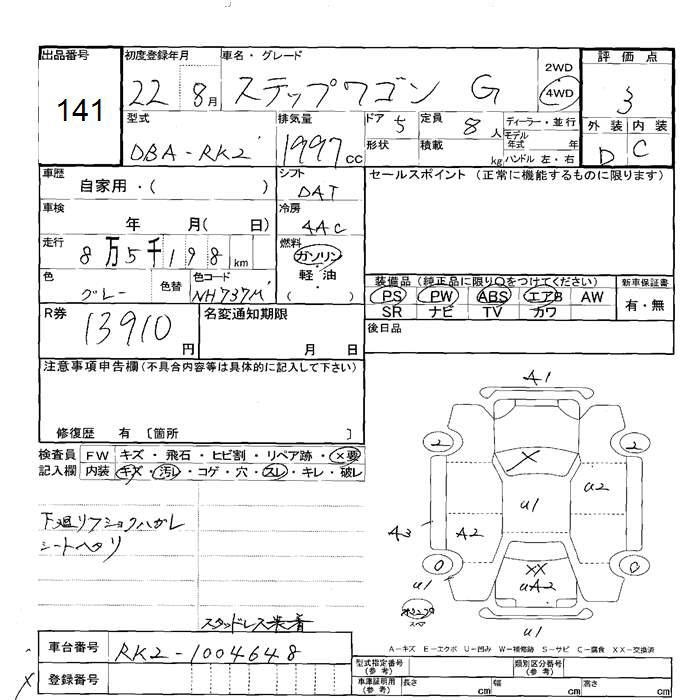 出品番号 初度登録年月 車名・グレード 評価点
141 22 8月 ステップワゴン G 2WD 4WD 3
型式 排気量 ドア 5 定員 8人 ディーラー・並行 外装 内装
DBA-RK2 1997cc 形状 積載 kg モデル年式 年 ハンドル 左・右 D C
車歴 シフト セールスポイント (正常に機能するものに限ります)
自家用・( ) DAT
車検 冷房
年 月( 日) AAC
走行 燃料
8万5千198km ガソリン・軽・油
( )
色 色替 色コード 装備品 (純正品に限り○をつけてください) 新車保証書
グレー NH737M PS PW ABS エアB AW 有・無
SR ナビ TV カワ
R券 名変通知期限 後日品
13910円 月 日
注意事項申告欄(不具合内容等は具体的に記入して下さい)
修復歴 有 〔箇所 〕
検査員 FW キズ・飛石・ヒビ割・リペア跡・×要
記入欄 内装 キズ・汚レ・コゲ・穴・スレ・キレ・破レ
A1
2 2
X
U1 U2
A3 A2
0
XX
U1 UA2
U1
シートヘタリ
スタッドレス装着
A-キズ E-エクボ U-凹み W-補修跡 S-サビ C-腐食 XX-交換済
車台番号 RK2-1004648
登録番号
型式指定番号(参考) 類別区分番号(参考)
車庫証明用(参考) 長さ cm 幅 cm 高さ cm